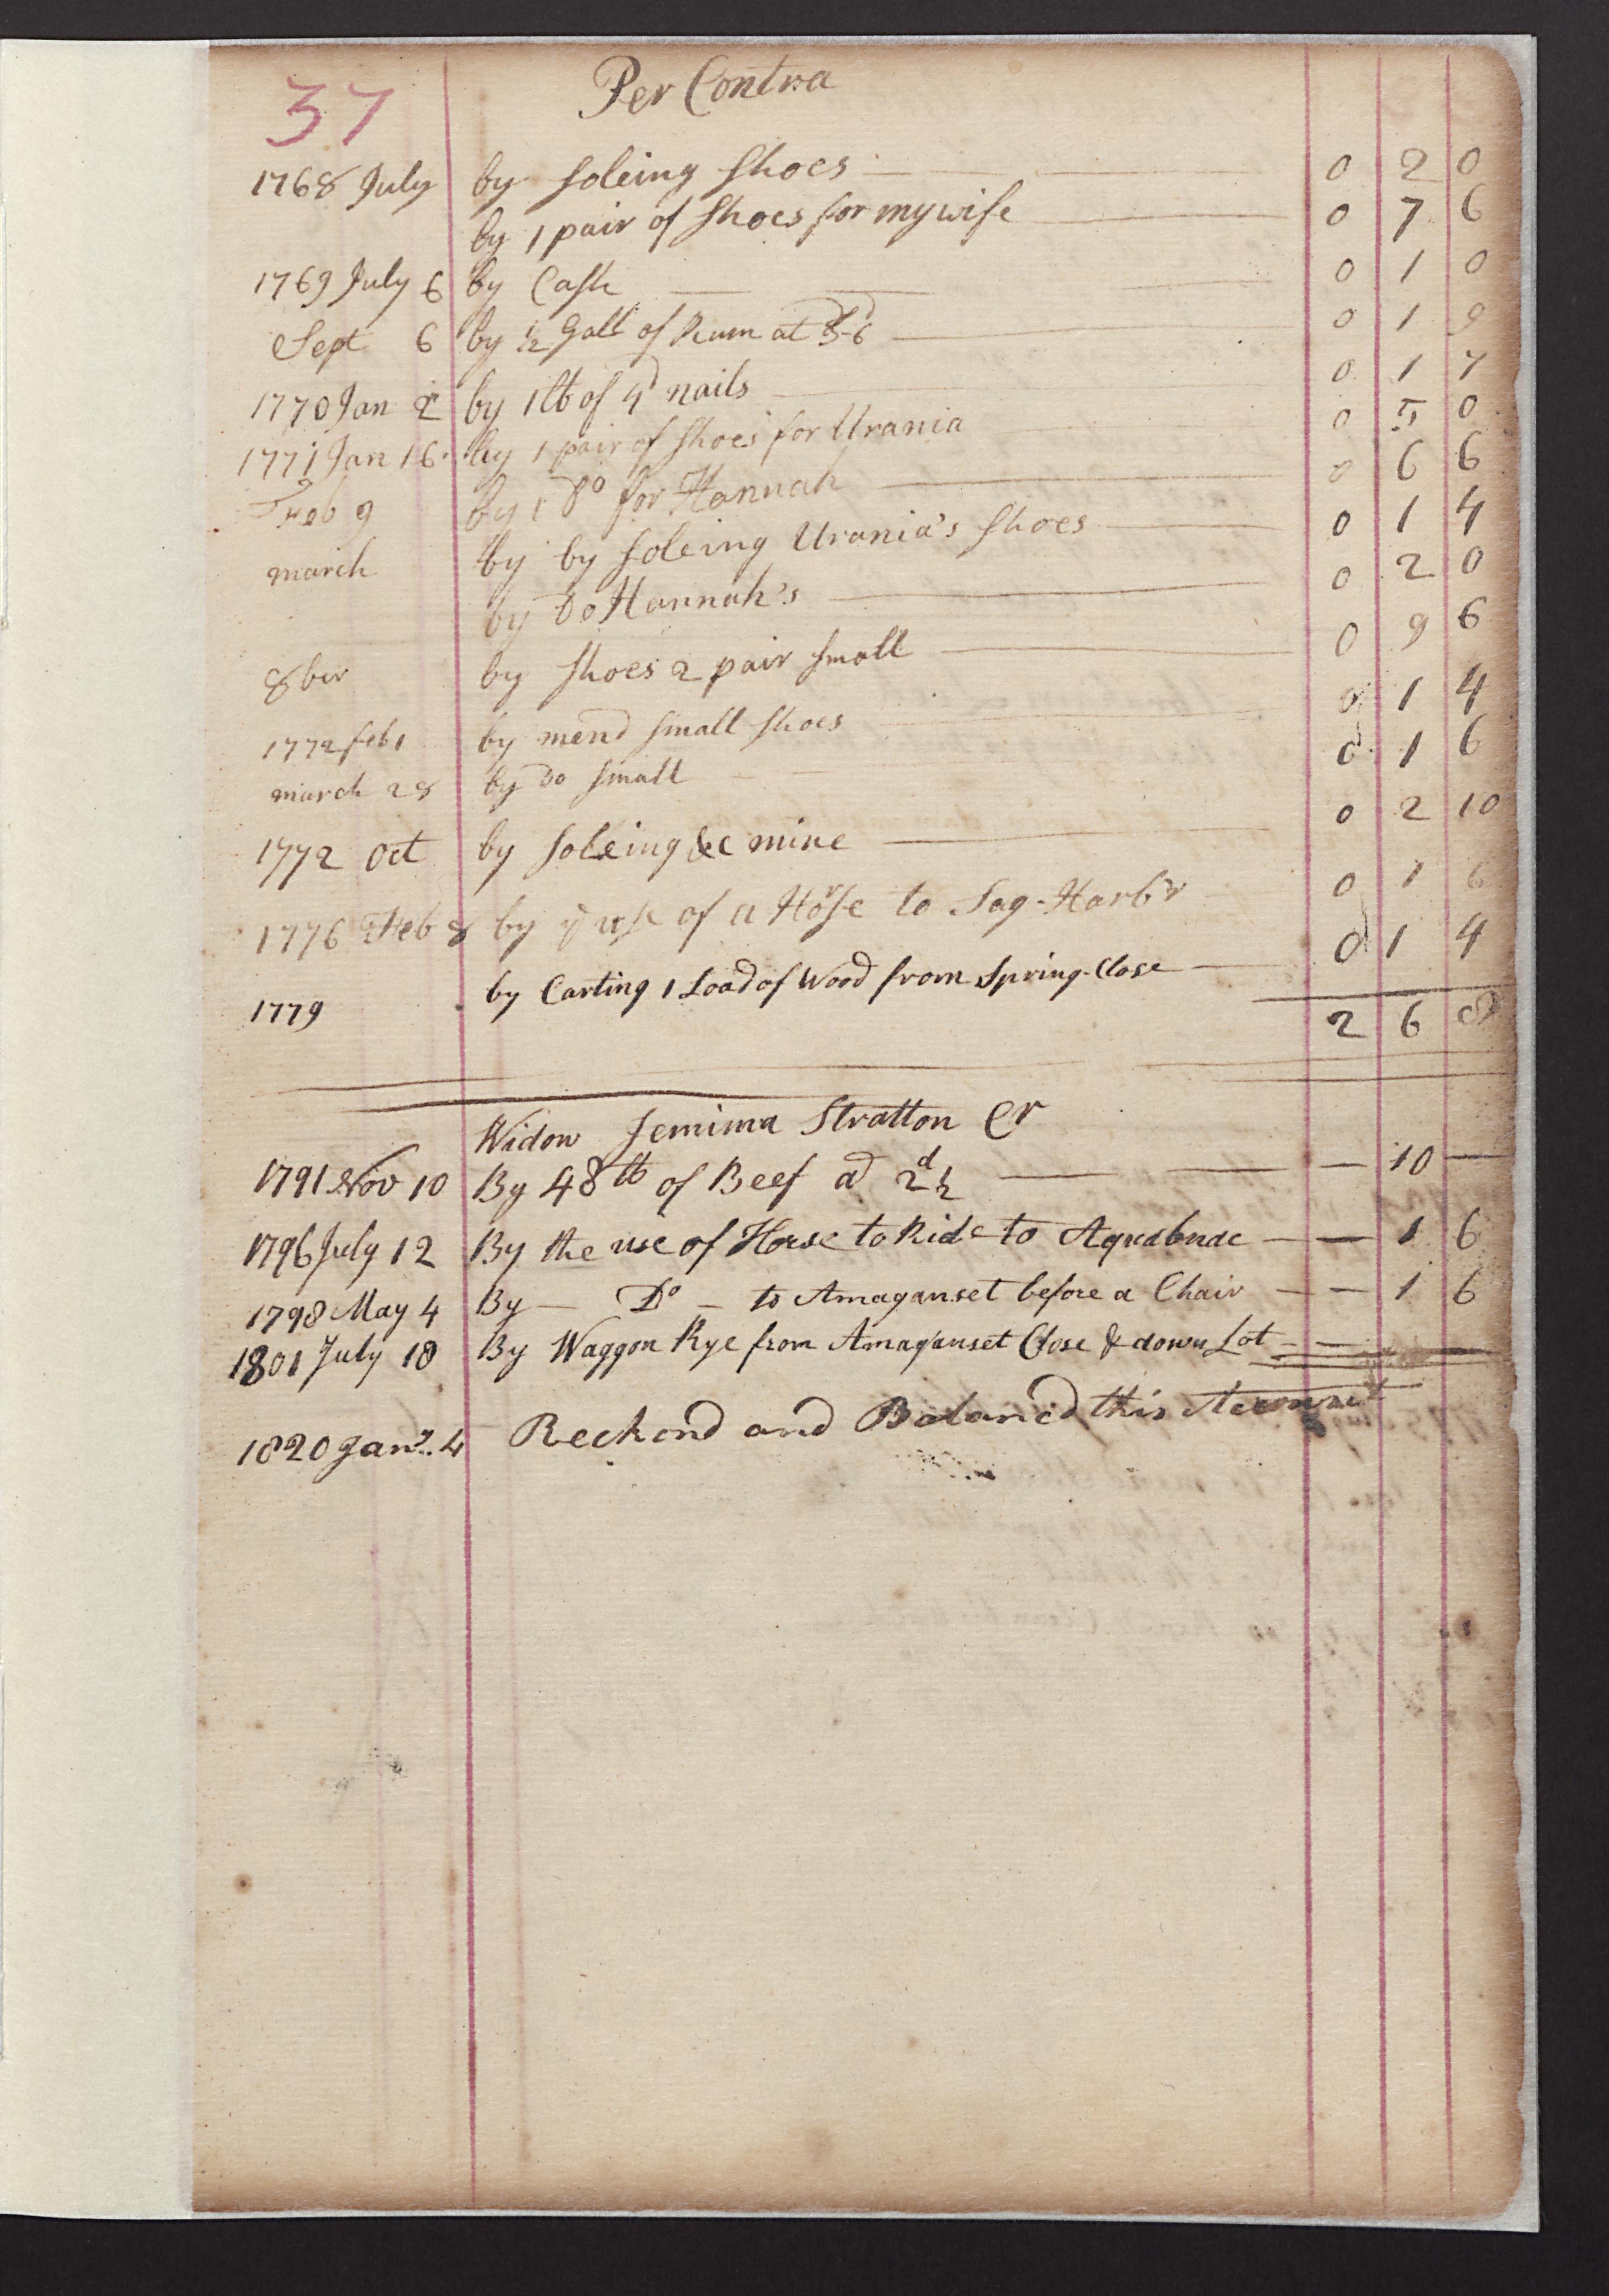 37 Per Contra
1768 July by soleing shoes 0 2 0
by 1 pair of shoes for my wife 0 7 6
1769 July 6 by Cash 0 1 0
Sept 6 by 1/2 Gall of Rum at 3-6 0 1 9
1770 Jan 2 by 1 lb of 4d nails 0 1 7
1771 Jan 16 by 1 pair of shoes for Urania 0 5 0
Feb 9 by 1 Do for Hannah 0 6 6
march by by soleing Urania's shoes 0 1 4
by Do Hannah's 0 2 0
8ber by shoes 2 pair small 0 9 6
1772 feb 1 by mend small shoes 0 1 4
march 28 by Do small 0 1 6
1772 Oct by soleing &c mine 0 2 10
1776 Feb 8 by ye use of a Horse to Sag-Harbr 0 1 6
1779 by Carting 1 Load of Wood from Spring-Close 0 1 4
2 6 8
Widow Jemima Stratton Cr
1791 Nov 10 By 48 lb of Beef a 2d 1/2 — 10 —
1796 July 12 By the use of Horse to Ride to Aquabuac — 1 6
1798 May 4 By — Do — to Amaganset before a Chair — 1 6
1801 July 18 By Waggon Rye from Amaganset Close & down Lot — —
1820 Jany. 4 Reckond and Balancd this Account